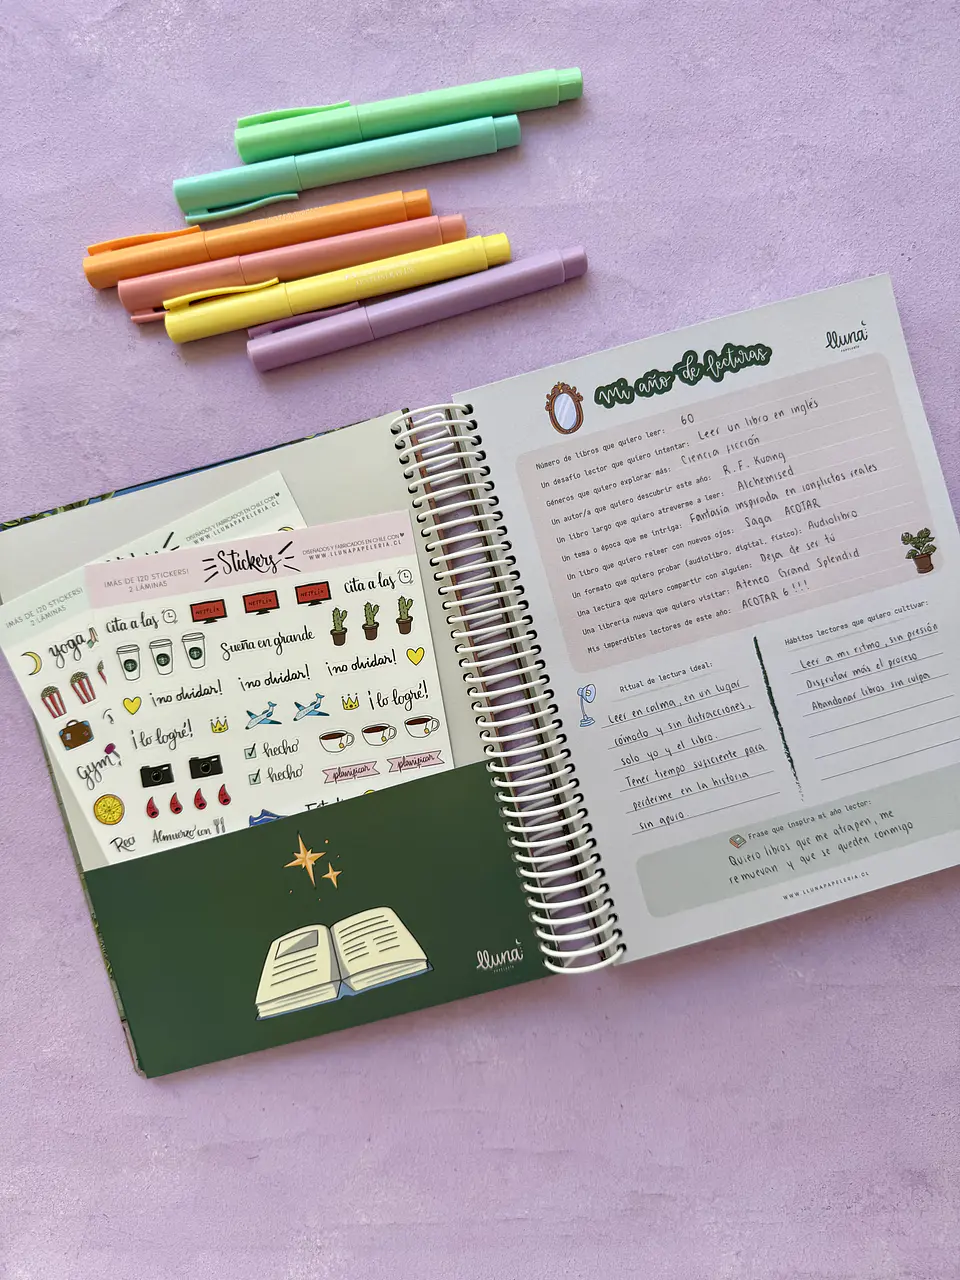 ¡MÁS DE 120 STICKERS!
2 LÁMINAS
DISEÑADOS Y FABRICADOS EN CHILE CON
WWW.LLUNAPAPELERIA.CL
yoga
gym
¡MÁS DE 120 STICKERS!
2 LÁMINAS
Stickers
DISEÑADOS Y FABRICADOS EN CHILE CON
WWW.LLUNAPAPELERIA.CL
Cita a las
NETFLIX
NETFLIX
NETFLIX
Cita a las
Sueña en grande
¡no olvidar!
¡no olvidar!
¡no olvidar!
¡lo logré!
¡lo logré!
hecho
hecho
planificar
planificar
Almuerzo con
lluna
PAPELERÍA
lluna
PAPELERÍA
Mi año de lecturas
Número de libros que quiero leer: 60
Un desafío lector que quiero intentar: Leer un libro en inglés
Géneros que quiero explorar más: Ciencia ficción
Un autor/a que quiero descubrir este año: R. F. Kuang
Un libro largo que quiero atreverme a leer: Alchemised
Un tema o época que me intriga: Fantasía inspirada en conflictos reales
Un libro que quiero releer con nuevos ojos: Saga ACOTAR
Un formato que quiero probar (audiolibro, digital, físico): Audiolibro
Una lectura que quiero compartir con alguien: Deja de ser tú
Una librería nueva que quiero visitar: Ateneo Grand Splendid
Mis imperdibles lectores de este año: ACOTAR 6!!!!
Ritual de lectura ideal:
Leer en calma, en un lugar
cómodo y sin distracciones,
solo yo y el libro.
Tener tiempo suficiente para
perderme en la historia
sin apuro.
Hábitos lectores que quiero cultivar:
Leer a mi ritmo, sin presión
Disfrutar más el proceso
Abandonar libros sin culpa
Frase que inspira mi año lector:
Quiero libros que me atrapen, me
remuevan y que se queden conmigo
WWW.LLUNAPAPELERIA.CL